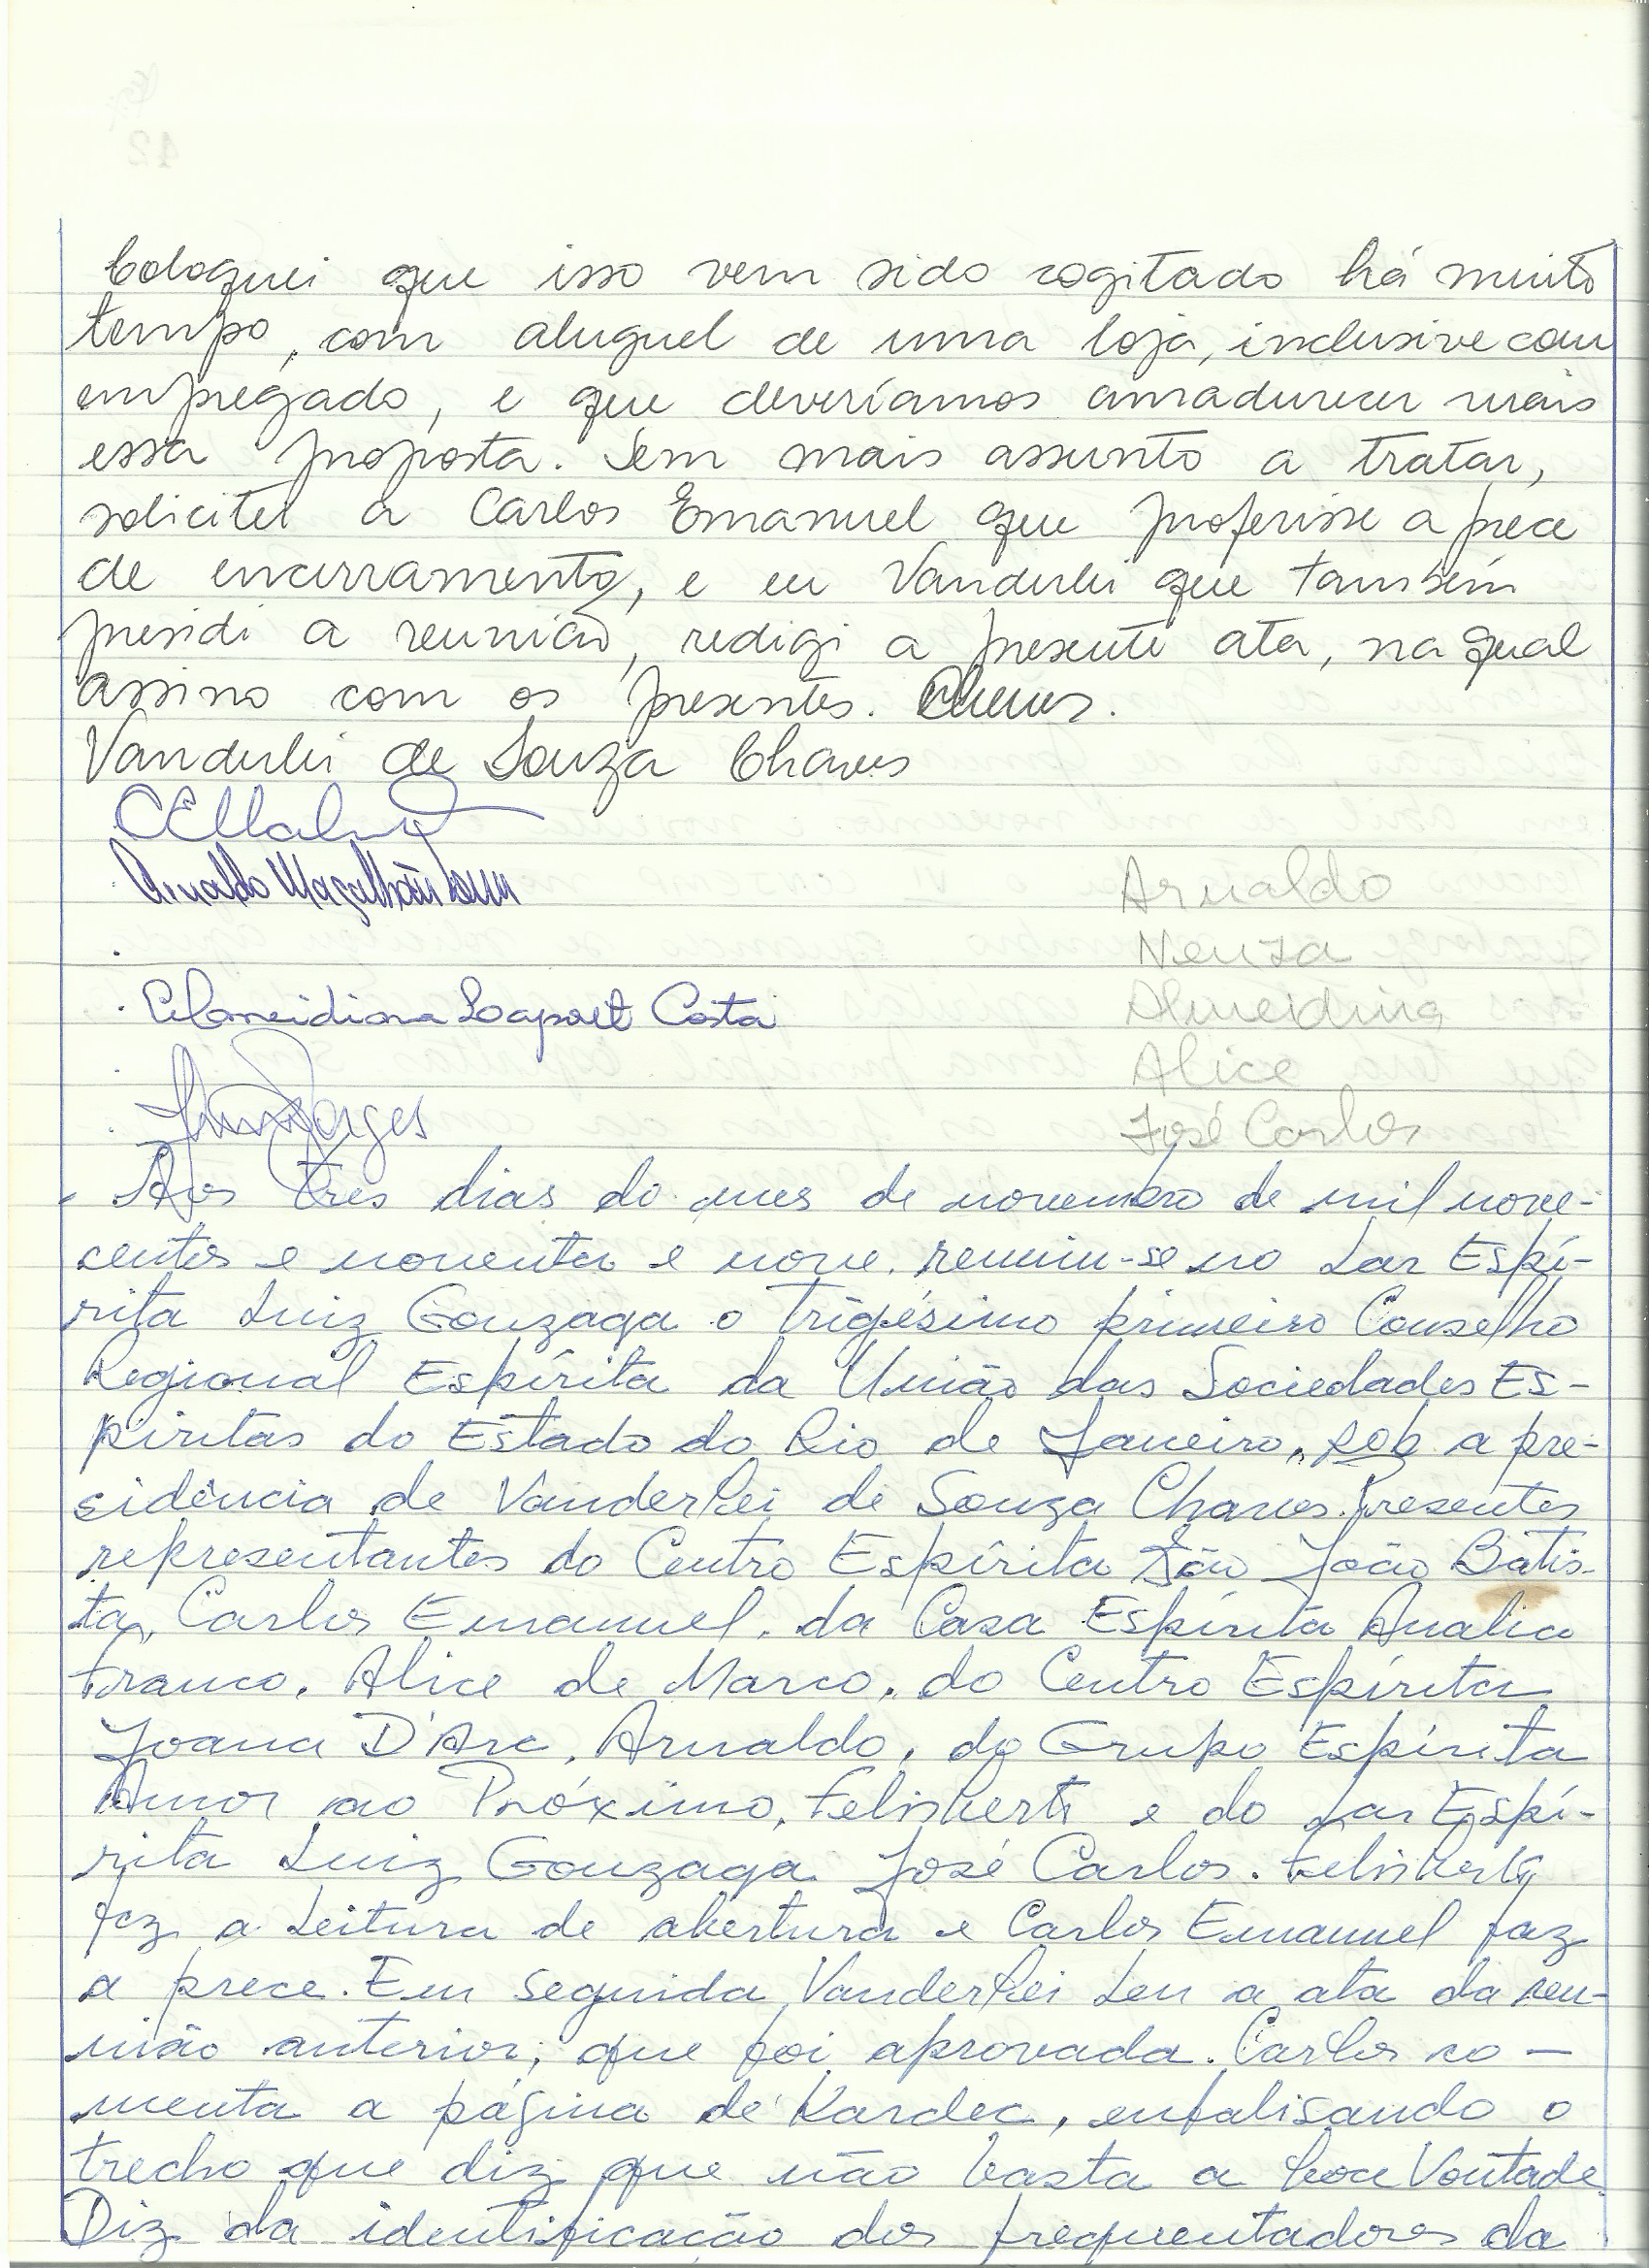 Coloquei que isso vem sido cogitado há muito
tempo, com aluguel de uma loja, inclusive com
empregado, e que deveríamos amadurecer mais
essa proposta. Sem mais assunto a tratar,
solicitei a Carlos Emanuel que proferisse a prece
de encerramento, e eu Vanderlei que também
presidi a reunião, redigi a presente ata, na qual
assino com os presentes.
Vanderlei de Souza Chaves
Arnaldo Magalhães
Arnaldo
Neuza
Almeidiana Laport Costa
Almeidina
Alice
Borges
José Carlos
Aos tres dias do mes de novembro de mil nove-
centos e noventa e nove, reuniu-se no Lar Espí-
rita Luiz Gonzaga o Trigésimo primeiro Conselho
Regional Espírita da União das Sociedades Es-
píritas do Estado do Rio de Janeiro, sob a pre-
sidência de Vanderlei de Souza Chaves. Presentes
representantes do Centro Espírita São João Batis-
ta, Carlos Emanuel, da Casa Espírita Analia
Franco, Alice de Marco, do Centro Espírita
Joana D'Arc, Arnaldo, do Grupo Espírita
Amor ao Próximo, Felisberto e do Lar Espí-
rita Luiz Gonzaga José Carlos. Felisberto
fez a Leitura de abertura e Carlos Emanuel faz
a prece. Em seguida Vanderlei Leu a ata da reu-
nião anterior, que foi aprovada. Carlos co-
menta a página de Kardec, enfalisando o
trecho que diz que não basta a boa Vontade.
Diz da identificação dos frequentadores da